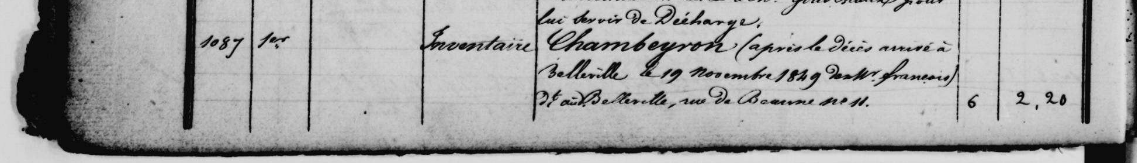 lui servir de Décharge.
1087 1er Inventaire Chambeyron (après le décès arrivé à
Belleville le 19 novembre 1849 de Mr. françois)
dt. aud. Belleville, rue de Beaune no 11. 6 2,20